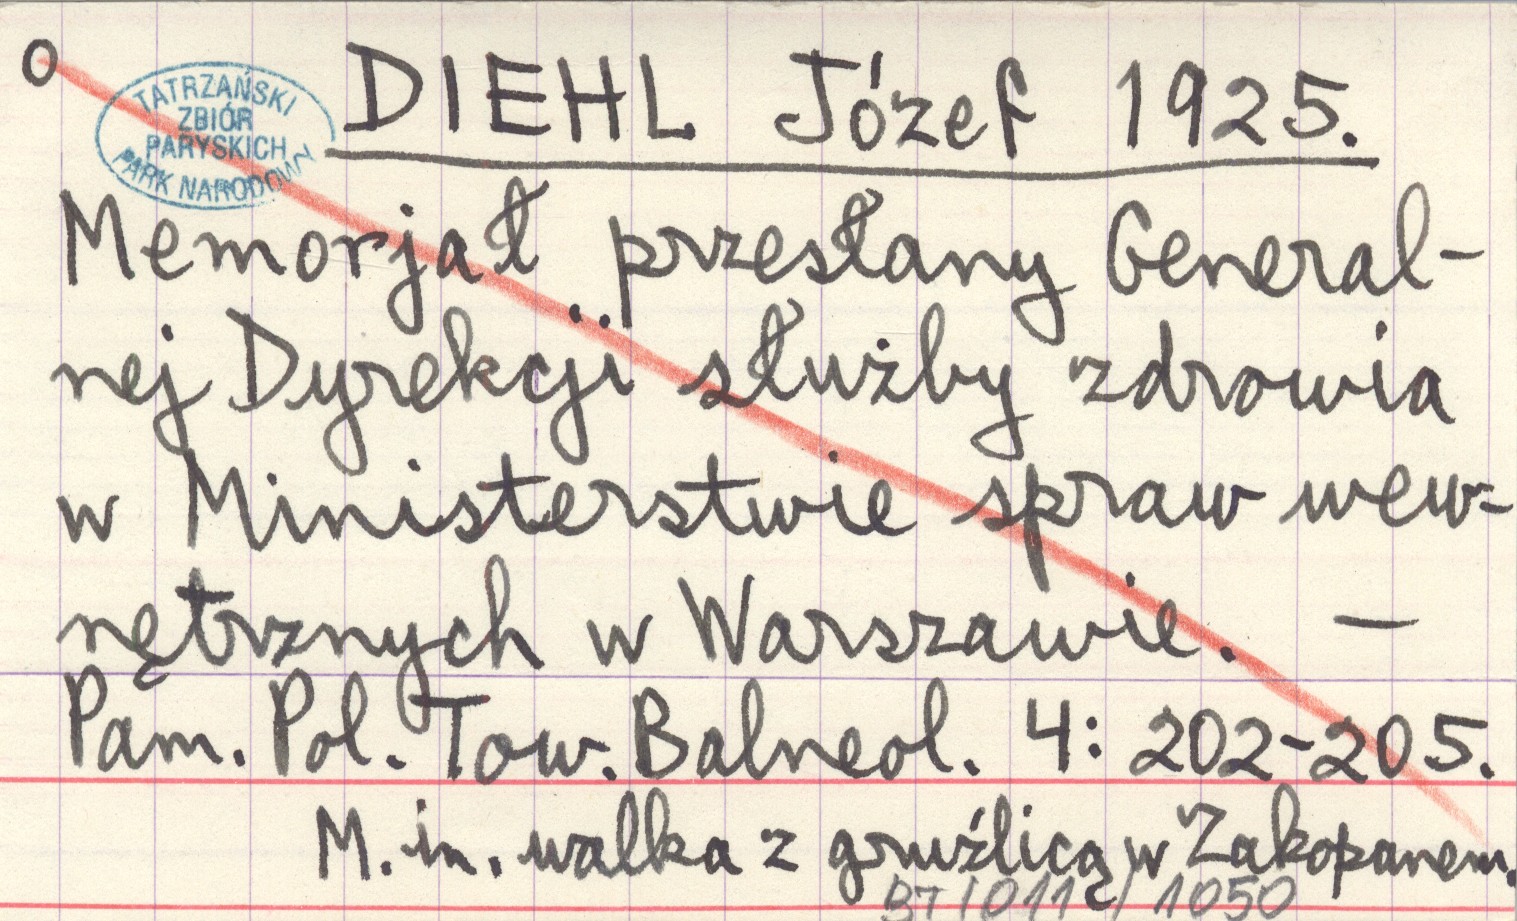 O
TATRZAŃSKI
ZBIÓR
PARYSKICH
PARK NARODOWY
DIEHL Józef 1925.
Memorjał przesłany General-
nej Dyrekcji służby zdrowia
w Ministerstwie spraw wew-
nętrznych w Warszawie. —
Pam. Pol. Tow. Balneol. 4: 202-205.
M. in. walka z gruźlicą w Zakopanem.
BT / 011 / 1050